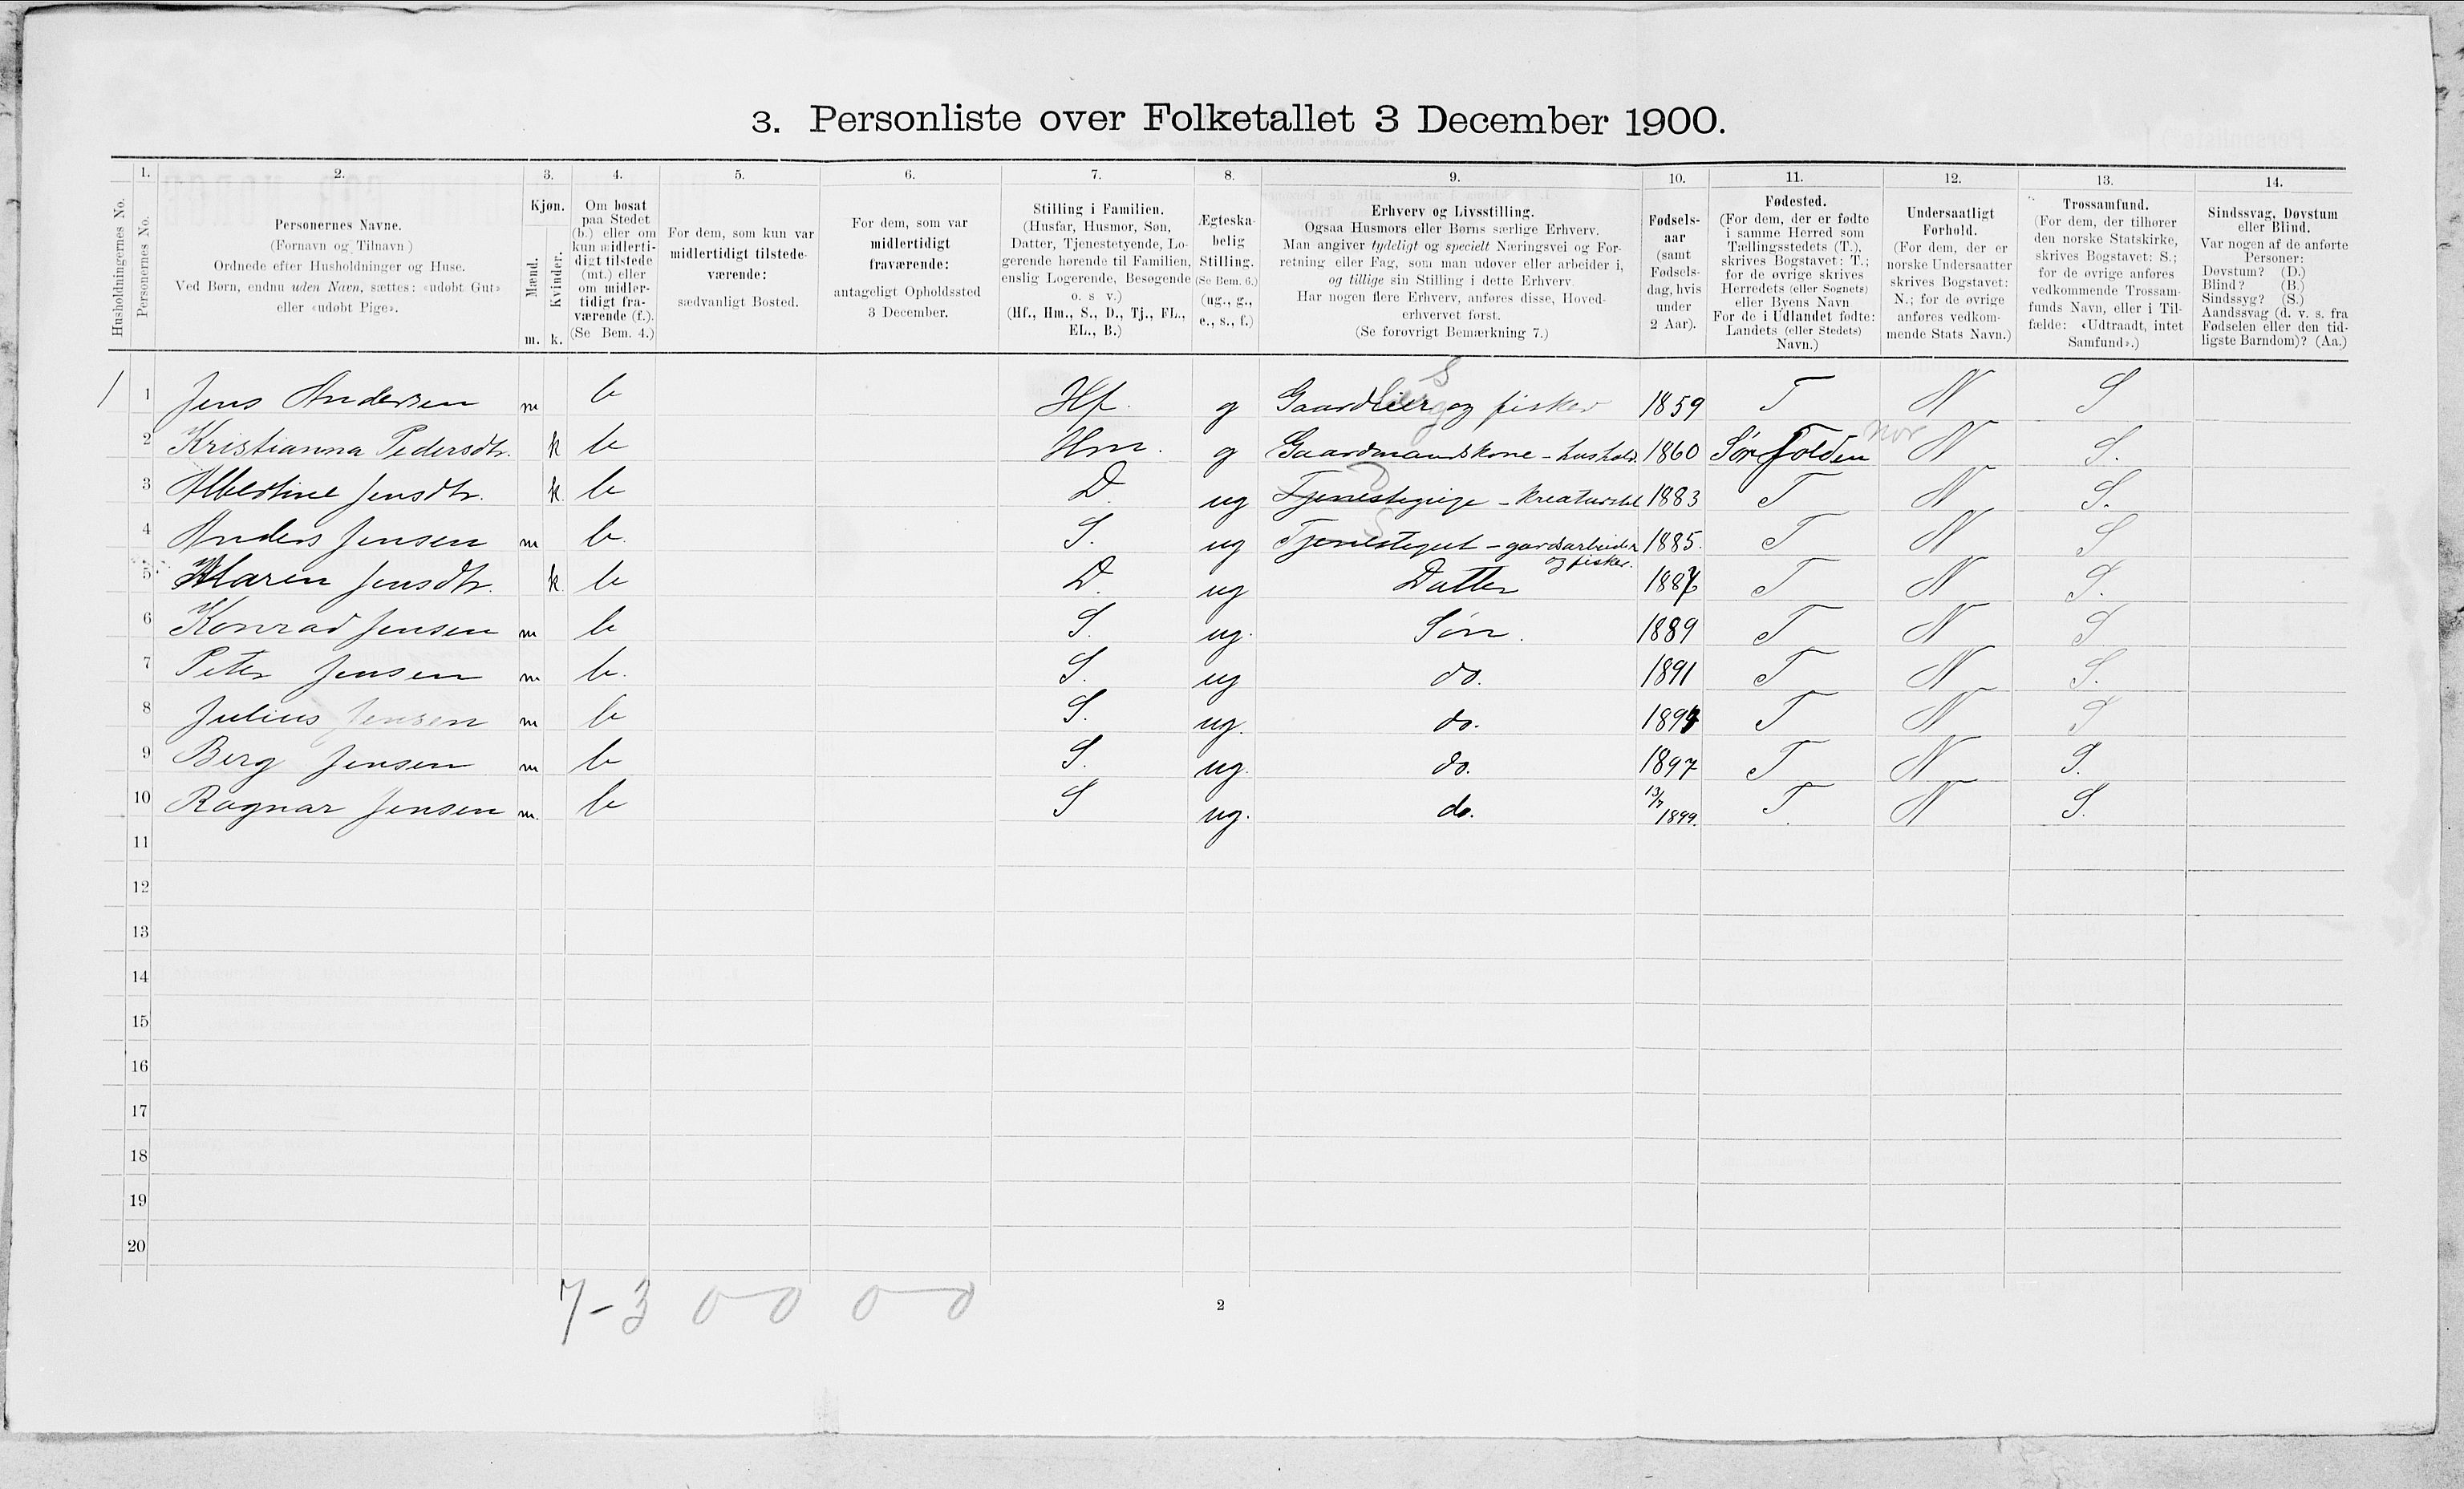 3. Personliste over Folketallet 3 December 1900.
Husholdningernes No.
1. Personernes No.
2. Personernes Navne.
(Fornavn og Tilnavn)
Ordnede efter Husholdninger og Huse.
Ved Børn, endnu uden Navn, sættes: «udøbt Gut»
eller «udøbt Pige».
3. Kjøn.
Mænd. m.
Kvinder. k.
4. Om bosat
paa Stedet
(b.) eller om
kun midlerti-
digt tilstede
(mt.) eller
om midler-
tidigt fra-
værende (f.).
(Se Bem. 4.)
5. For dem, som kun var
midlertidigt tilstede-
værende:
sædvanligt Bosted.
6. For dem, som var
midlertidigt
fraværende:
antageligt Opholdssted
3 December.
7. Stilling i Familien.
(Husfar, Husmor, Søn,
Datter, Tjenestetyende, Lo-
gerende hørende til Familien,
enslig Logerende, Besøgende
o. s v.)
(Hf., Hm., S., D., Tj., FL.,
EL., B.)
8. Ægteska-
belig
Stilling.
(Se Bem. 6.)
(ug., g.,
e., s., f.)
9. Erhverv og Livsstilling.
Ogsaa Husmors eller Børns særlige Erhverv.
Man angiver tydeligt og specielt Næringsvei og For-
retning eller Fag, som man udøver eller arbeider i,
og tillige sin Stilling i dette Erhverv.
Har nogen flere Erhverv, anføres disse, Hoved-
erhvervet først.
(Se forøvrigt Bemærkning 7.)
10. Fødsels-
aar
(samt
Fødsels-
dag, hvis
under
2 Aar).
11. Fødested.
(For dem, der er fødte
i samme Herred som
Tællingsstedets (T.),
skrives Bogstavet: T.;
for de øvrige skrives
Herredets (eller Sognets)
eller Byens Navn
For de i Udlandet fødte:
Landets (eller Stedets)
Navn.)
12. Undersaatligt
Forhold.
(For dem, der er
norske Undersaatter
skrives Bogstavet:
N.; for de øvrige
anføres vedkom-
mende Stats Navn.)
13. Trossamfund.
(For dem, der tilhører
den norske Statskirke,
skrives Bogstavet: S.;
for de øvrige anføres
vedkommende Trossam-
funds Navn, eller i Til-
fælde: «Udtraadt, intet
Samfund».)
14. Sindssvag, Døvstum
eller Blind.
Var nogen af de anførte
Personer:
Døvstum? (D.)
Blind? (B.)
Sindssyg? (S.)
Aandssvag (d. v. s. fra
Fødselen eller den tid-
ligste Barndom)? (Aa.)
S
1 1 Jens Andersen m b Hf. g og fisker 1859 T N S
nor
2 Kristianna Pedersdtr. k b Hm. g Gaardmandskone - hushold. 1860 Sørfolden N S.
3 Albertine Jensdtr. k. b D. ug Tjenestepige - kreaturstel 1883 T N S.
4 Anders Jensen m b. S. ug Tjenestegut - gaardsarbeider 1885. T N S
og fisker.
5 Maren Jensdtr. k. b D. ug Datter T N S.
6 Konrad Jensen m b S. ug. Søn. 1889 T N S
7 Peter Jensen m b. S. ug do. 1891 T N S.
8 Julius Jensen m b S. ug. do. T N S
9 Berg Jensen m b S. ug. do. 1897 T N S.
10 Ragnar Jensen m. b S ug. do. 13/7 1899. T. N S.
11
12
13
14
15
16
17
18
19
20
7-3 0-0 0-0
2